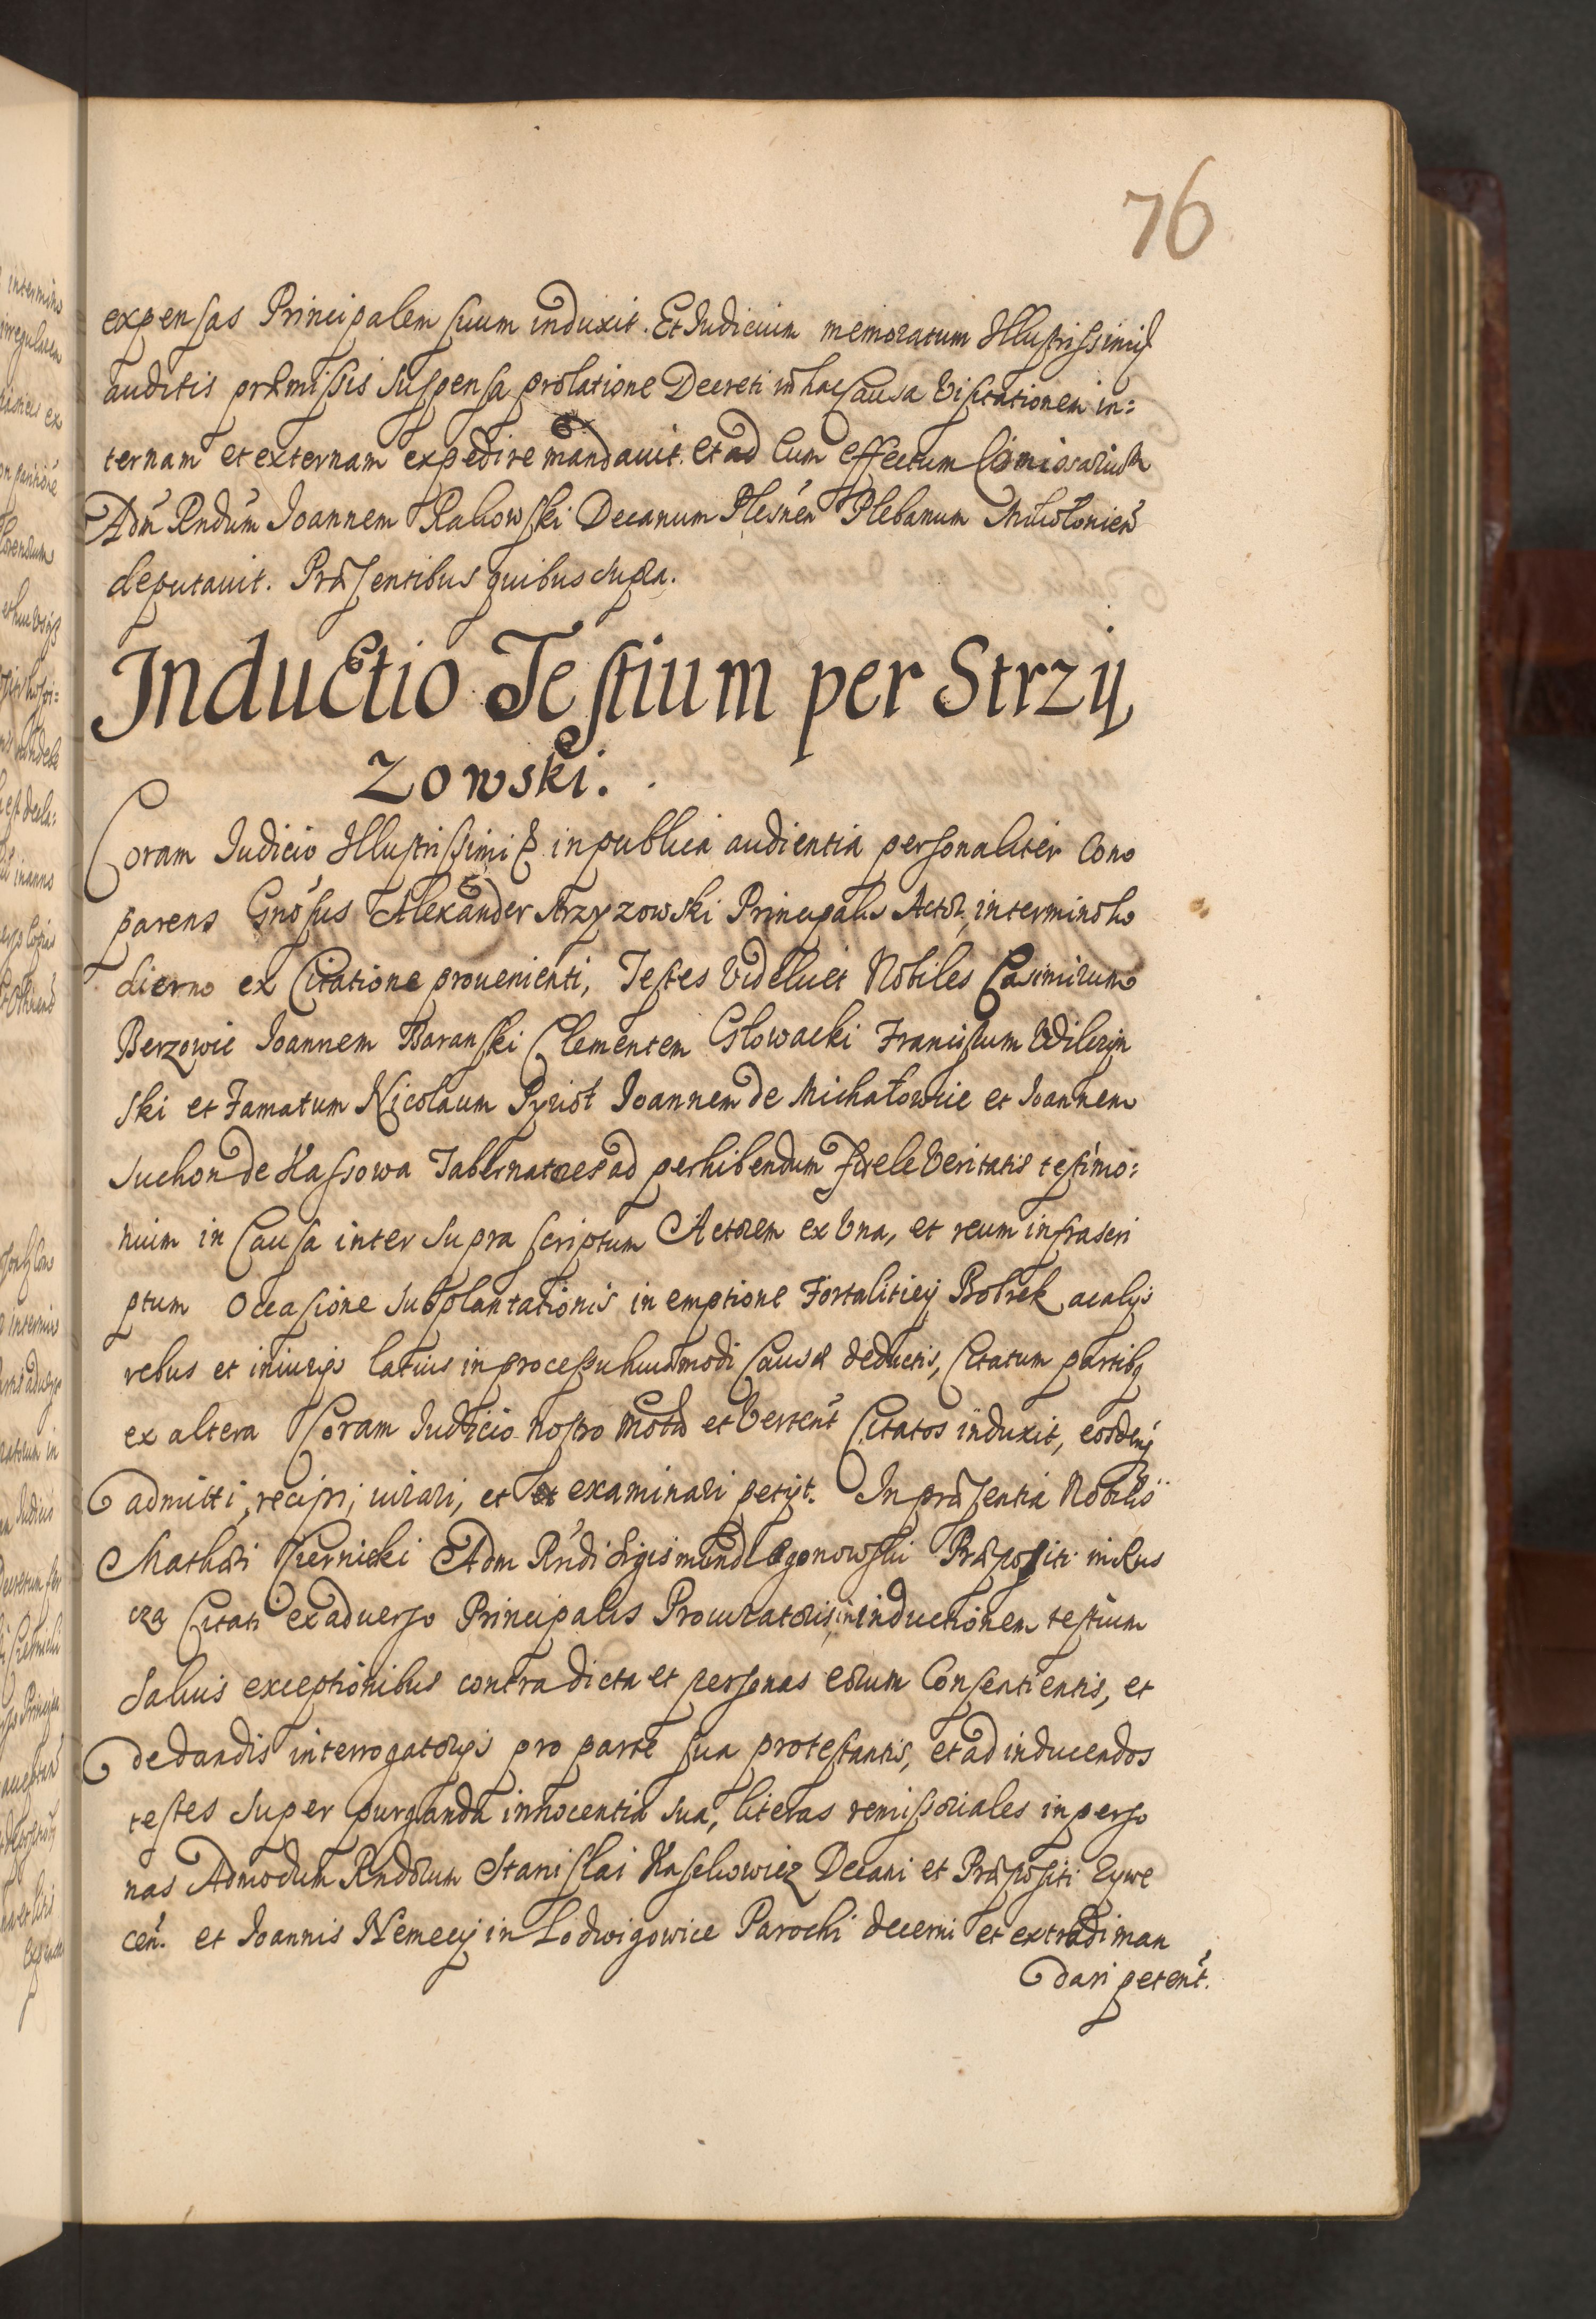 76
expensas Principalem suum induxit. Et Iudicium memoratum Illustrissimi
auditis præmissis suspensa prolatione Decreti in hac Causa Visitationem in=
ternam et externam expedire mandauit. et ad Eum effectum Comissarium
Adm̃ Rndũm Ioannem Rakowski Decanum Plesnẽn Plebanum Mikoloniẽn
deputauit. Præsentibus quibus supra.
Inductio Testium per Strzy
zowski.
Coram Iudicio Illustrissimi in publica audientia personaliter Com
parens Gnõsus Alexander Strzyzowski Principalis Actor, in termino ho
dierno ex Citatione prouenienti, Testes Videlicet Nobiles Casimirum
Berzowic Ioannem Baranski Clementem Glowacki Franciscum Wilczyn
ski et Famatum Nicolaum Ioannem de Michałowice et Ioannem
Suchon de Kassowa Tabernatores ad perhibendum fidele Veritatis testimo=
nium in Causa inter supra scriptum Actorem ex Vna, et reum infrascri
ptum Occasione subplantationis in emptione Fortalitiey Bobrek ac alijs
rebus et iniurijs latius in processu huiusmodi Causæ deductis, Citatum partibq
ex altera Coram Iudicio nostro mota et Vertent̃ Citatos induxit, eosdemq
admitti, recipi, iurari, et examinari petijt. In præsentia Nobilis
Mathæi Czernicki Adm Rñdi Sigismundi Ogonowski Præpositi in Rus
cza Citati ex aduerso Principalis Procuratoris, in inductionem testium
Saluis exceptionibus contra dicta et personas eorum Consentientis, et
de dandis interrogatorijs pro parte sua protestantis, et ad inducendos
testes super purganda innocentia sua, literas remissoriales in perso
nas Admodum Rndorum Stanislai Kaszkowicz Decani et Præpositi Zywe
cẽn. et Ioannis Nemecy in Lodwigowice Parochi decerni et extradi man
dari petent̃.